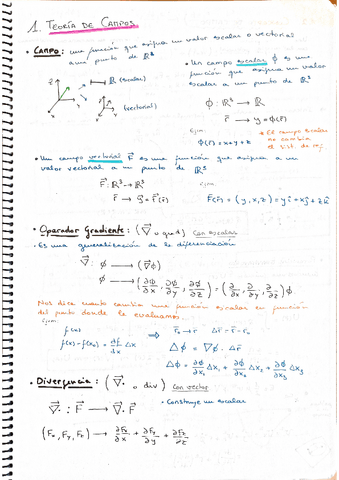 1. TEORÍA DE CAMPOS
• CAMPO: una función que asigna un valor escalar o vectorial
a un punto de ℝ³
z
(escalar)
(vectorial)
y
x
• Un campo escalar ϕ es una
función que asigna un valor
escalar a un punto de ℝ³
ϕ: ℝ³ → ℝ
r⃗ → y = ϕ(r⃗)
Ejm:
ϕ(r⃗) = x+y+z
* El campo escalar
no cambia
el sist. de
• Un campo vectorial F⃗ es una función que asigna a un
valor vectorial a un punto de ℝ³
F⃗: ℝ³ → ℝ³
r⃗ → y⃗ = F⃗(r⃗)
Ejm:
F(r⃗) = (y, x, z) = yî + xĵ + zk̂
• Operador Gradiente: (∇⃗ o grad) con escalar
• Es una generalización de la diferenciación
∇⃗: ϕ → (∇⃗ϕ)
ϕ → (∂ϕ/∂x, ∂ϕ/∂y, ∂ϕ/∂z) = (∂/∂x, ∂/∂y, ∂/∂z)ϕ
Nos dice cuanto cambia una función escalar en función
del punto donde la evaluamos.
Ejm:
f(x)
f(x) - f(x₀) = df/dx Δx
⇒
r⃗₀ → r⃗ Δr⃗ = r⃗ - r⃗₀
Δϕ = ∇ϕ · Δr⃗
Δϕ = ∂ϕ/∂x₁ Δx₁ + ∂ϕ/∂x₂ Δx₂ + ∂ϕ/∂x₃ Δx₃
• Divergencia: (∇⃗· o div) con vector
∇⃗· : F⃗ → ∇⃗·F⃗
• Construye un escalar
(Fₓ, Fᵧ, F_z) → ∂Fₓ/∂x + ∂Fᵧ/∂y + ∂F_z/∂z